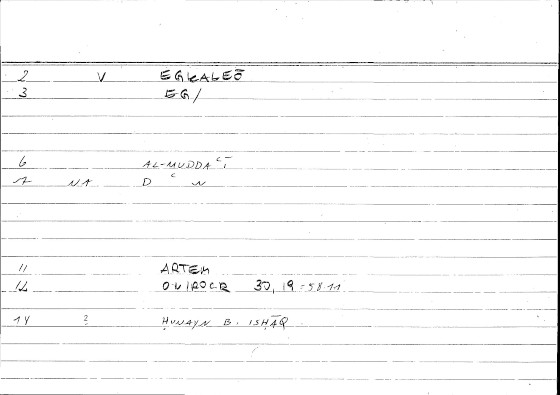 2 V EGKALEŌ
3 EG/
6 AL-MUDDAʿĪ
7 NA D ʿ W
11 ARTEM
12 ONIROCR 30, 19 = 58 11
14 2 ḤUNAYN B. ISḤĀQ